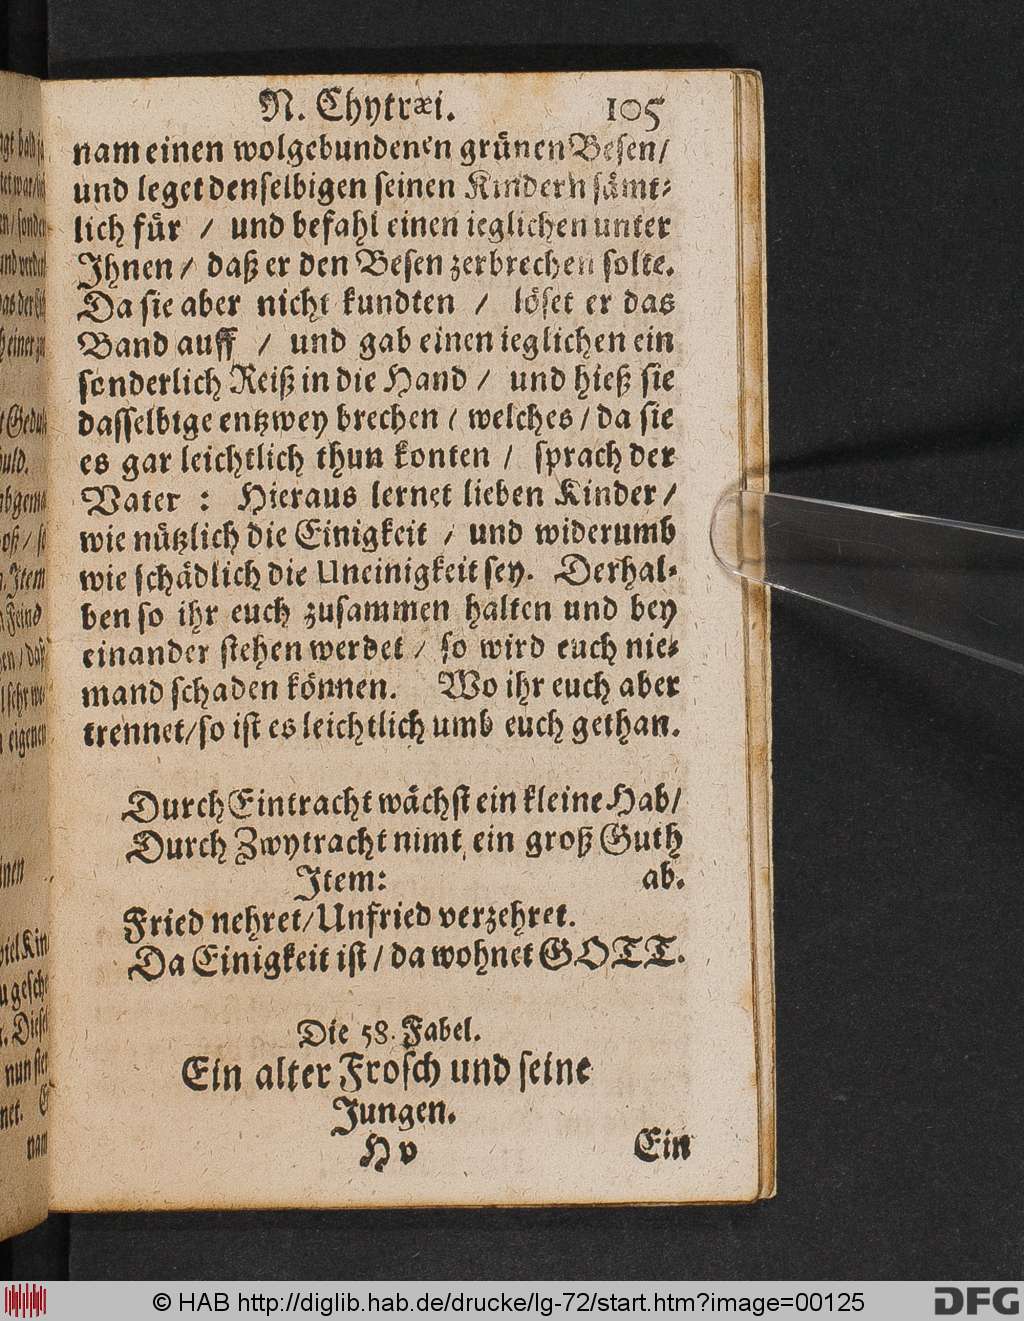 N. Chytræi. 105
nam einen wolgebundenen grünen Besen/
und leget denselbigen seinen Kindern sämt⸗
lich für / und befahl einen ieglichen unter
Ihnen / daß er den Besen zerbrechen solte.
Da sie aber nicht kundten / löset er das
Band auff / und gab einen ieglichen ein
sonderlich Reiß in die Hand / und hieß sie
dasselbige entzwey brechen / welches / da sie
es gar leichtlich thun konten / sprach der
Vater : Hieraus lernet lieben Kinder /
wie nützlich die Einigkeit / und widerumb
wie schädlich die Uneinigkeit sey. Derhal⸗
ben so ihr euch zusammen halten und bey
einander stehen werdet / so wird euch nie⸗
mand schaden können. Wo ihr euch aber
trennet/so ist es leichtlich umb euch gethan.
Durch Eintracht wächst ein kleine Hab/
Durch Zwytracht nimt ein groß Guth
Item: ab.
Fried nehret/Unfried verzehret.
Da Einigkeit ist / da wohnet GOTT.
Die 58. Fabel.
Ein alter Frosch und seine
Jungen.
H v Ein
© HAB http://diglib.hab.de/drucke/lg-72/start.htm?image=00125
DFG